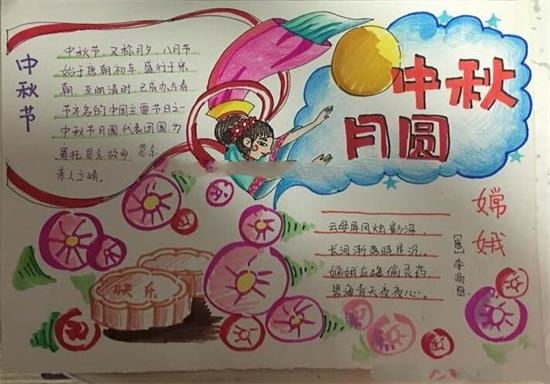 中秋节
中秋节,又称月夕、八月节
始于唐朝初年,盛行于宋
朝,至明清时,已成为与春
节齐名的中国主要节日之一
中秋节月圆代表团圆为
寄托思念故乡 思念
亲人之情。
中秋
月圆
嫦娥
[唐]李商隐
云母屏风烛影深,
长河渐落晓星沉。
嫦娥应悔偷灵药
碧海青天夜夜心。
快乐